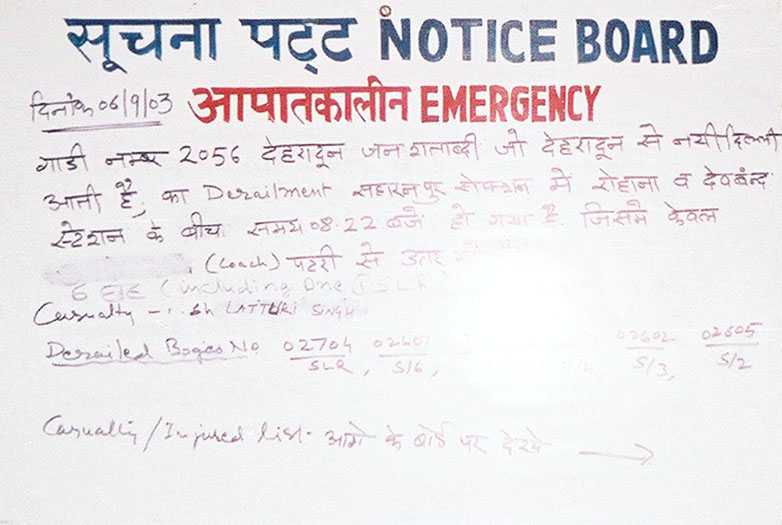 सूचना पट्ट NOTICE BOARD
दिनांक 06/9/03 आपातकालीन EMERGENCY
गाडी नम्बर 2056 देहरादून जन शताब्दी जो देहरादून से नयी दिल्ली
आती है, का Derailment सहारनपुर सेक्शन मे रोहाना व देवबंद
स्टेशन के बीच समय 08.22 बजे हो गया है. जिसमे केवल
(Coach) पटरी से उतर
6 (including One SLR
Casualty - Sh LATTURI SINGH
Derailed Bogies No 02704 SLR, S/6, 02602 S/3, 02605 S/2
Casualty/Injured list- आगे के बोर्ड पर देखे →